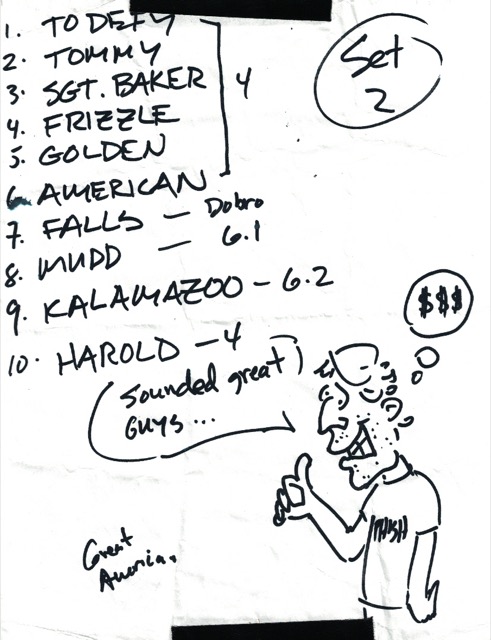 1. TO DEFY
2. TOMMY
3. SGT. BAKER
4. FRIZZLE
5. GOLDEN
6. AMERICAN
4
7. FALLS — Dobro
8. MUDD — 6.1
9. KALAMAZOO — 6.2
10. HAROLD — 4
Set
2
$$$
Sounded great
GUYS ...
Great
America.